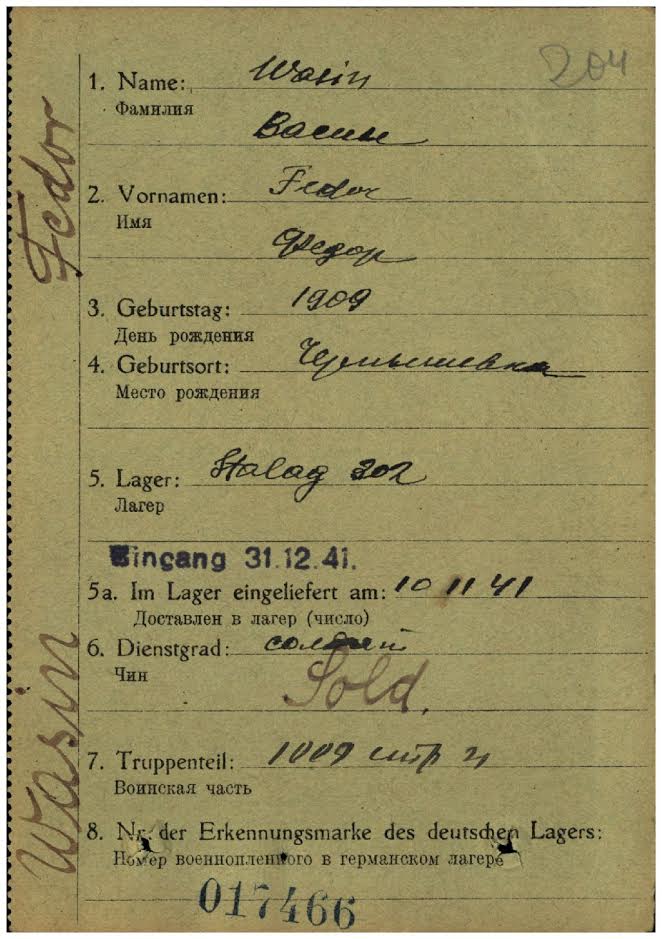 204
1. Name: Wasin
Фамилия
Васин
2. Vornamen: Fedor
Имя
Федор
3. Geburtstag: 1909
День рождения
4. Geburtsort:
Место рождения
5. Lager: Stalag 302
Лагер
Eingang 31.12.41.
5a. Im Lager eingeliefert am: 10 11 41
Доставлен в лагер (число)
6. Dienstgrad: солдат
Чин
Sold.
7. Truppenteil: 1009 стр
Воинская часть
8. Nr. der Erkennungsmarke des deutschen Lagers:
Номер военнопленного в германском лагере
017466
Wasin Fedor